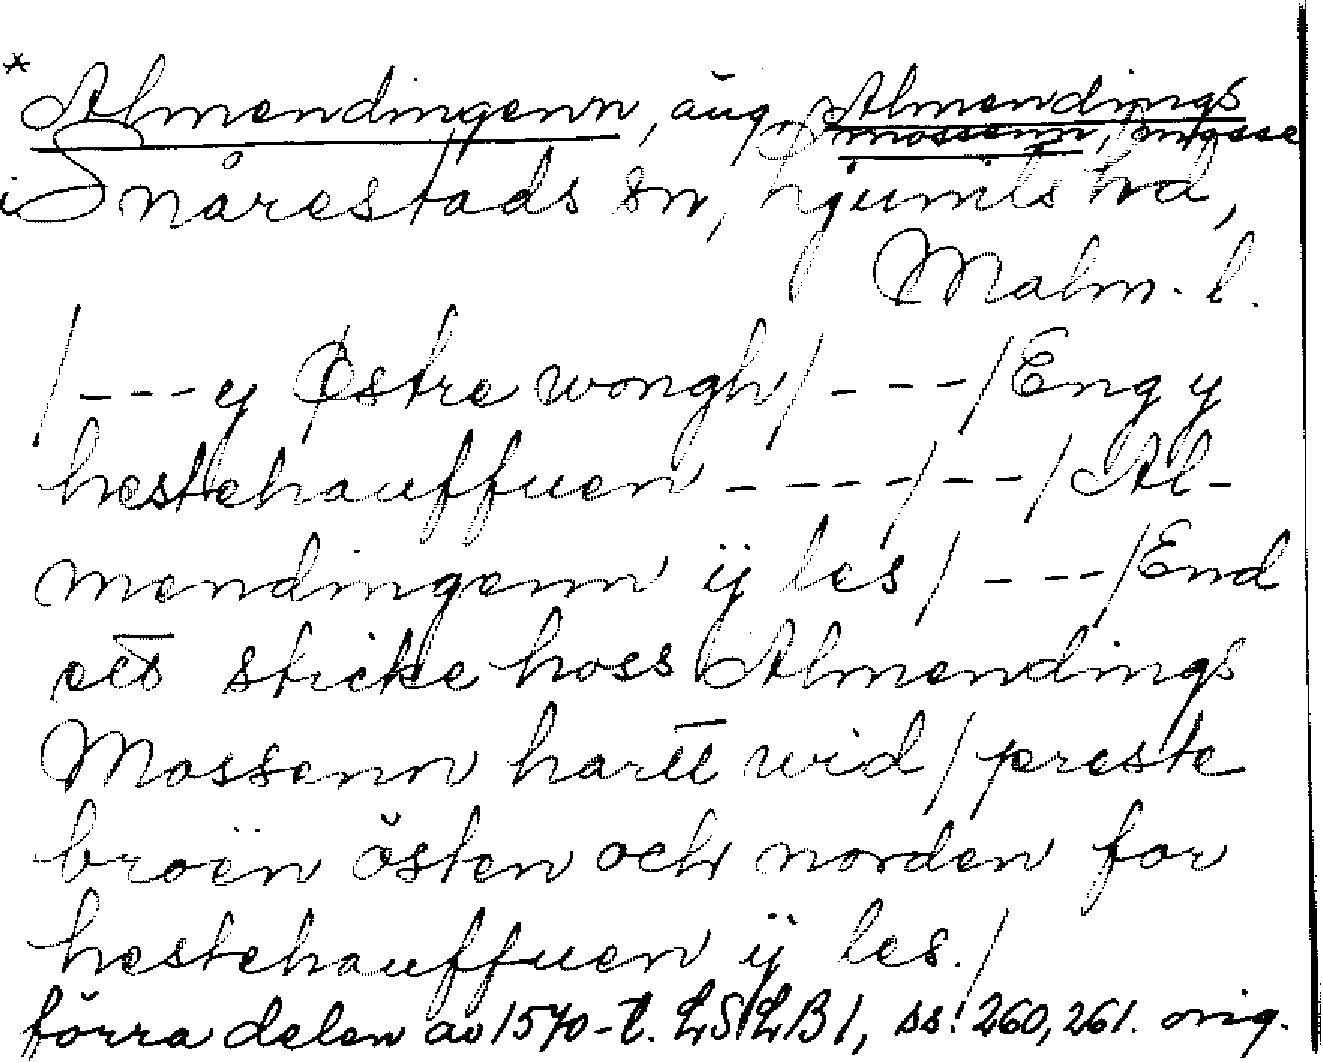 * Almendingenn, äng, Almendings
mossenn, mosse
i Snårestads sn, Ljunits hd,
Malm. l.
/---y Østre wongh/---/Eng y
hestehauffuen ----/--/Al-
mendingenn ij les/---/End
ett sticke hoss Almendings
Mossenn hartt wid/preste
broën östen och norden for
hestehauffuen ij les./
förra delen av 1570-t. LSLB1, ss. 260, 261. orig.